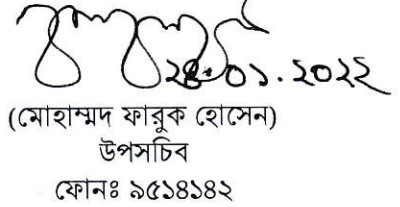 ২৪.০১.২০২২
(মোহাম্মদ ফারুক হোসেন)
উপসচিব
ফোনঃ ৯৫১৪১৪২